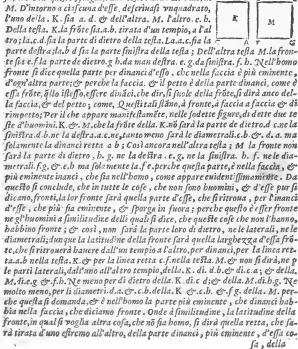 K M
A G
M. D'intorno a ciascuna d'esse, descriuasi vn quadrato,
l'uno della. K. sia a. d. & dell'altra. M. l'altro. e. h.
Della testa. K. la frõte sia a. b. tirata d'un tempio, a l'al
tro; la. c. d. sia la parte di dietro della testa. La. a. c. sia la
parte destra; la. b. d sia la parte sinistra della testa; Dell'altra testa M. la fron-
te sia e. f. la parte de dietro. g. h. da man destra. e. g. da sinistra. f. h. Nell'homo
fronte si dice quella parte per dinanzi d'esso, che nella faccia è più eminente,
d'ogn'altra parte; & perche la faccia, & il petto è della parte dinanci, come è
essa frõte,
la faccia, & del petto; come, Questi ali stãno, à fronte, à faccia a faccia & di
rimpetto; Per il che appare manifestamẽte, nelle sodette figure, di due due te
ste d'huomini. K. & M. che la frõte della. K. nõ sarà la parte de dietro d. c. ne la
sinistra. d. b. ne la destra. a. c. ne, tanto meno sarà le diametrali. c. b. & d. a. ma
solamente la dinanci retta a. b; Così ancora nell'altra testa; M la fronte non
sarà la parte de dietro, h. g. ne la destra. e. g. ne la sinistra. h. f. ne le dia-
metrali. f. g. & e. h ma solamente la. f. e. perche questa parte, è nella faccia, &
più eminente inanci, che sia nell'homo, come appare euidentissimamente. Da
questo si conclude, che in tutte le cose, che non sono huomini, & d'esse pur si
dicano, fronti, la lor fronte sarà quella parte d'esse, che si ritroua, per l'inanci
d'esse, che più sia eminente, & sporga in fuora; perche questo è esser fronte
ne gl'huomini a similitudine delli quali si dice, che queste cose che non l'hanno,
habbino fronte; & così, non sarà la parte loro di dietro, ne le laterali, ne le
diametrali; dunque la latitudine della fronte sarà quella larghezza d'essa frõ-
te, che si ritrouerà hauere dall'un tempio a l'altro, per dinanci, per la linea ret-
ta. a. b nella testa. K. & per la linea retta e. f. nella testa. M. & non si dirà, ne p
le parti laterali, dall'uno all'altro tempio, della. K. di. d. b. & di c. a; & della,
M. di a. g & f. h. Ne meno per di dietro della. K. di c. d; & della M. di h. g. Ne
molto meno, per li diametri. d. a. & c. b. della. K. & e. h. & f. g. della. M. per-
che questa si domanda, & è nell'homo la parte più eminente, che dinanci hab-
bia nella faccia, che diciamo fronte. Onde a similitudine, la latitudine della
fronte, in qual si voglia altra cosa, che nõ sia homo, si dirà quella retta, che sa-
rà tirata d'uno estremo all'altro, della parte dinanci, più eminente, d'essa co-
sa, della